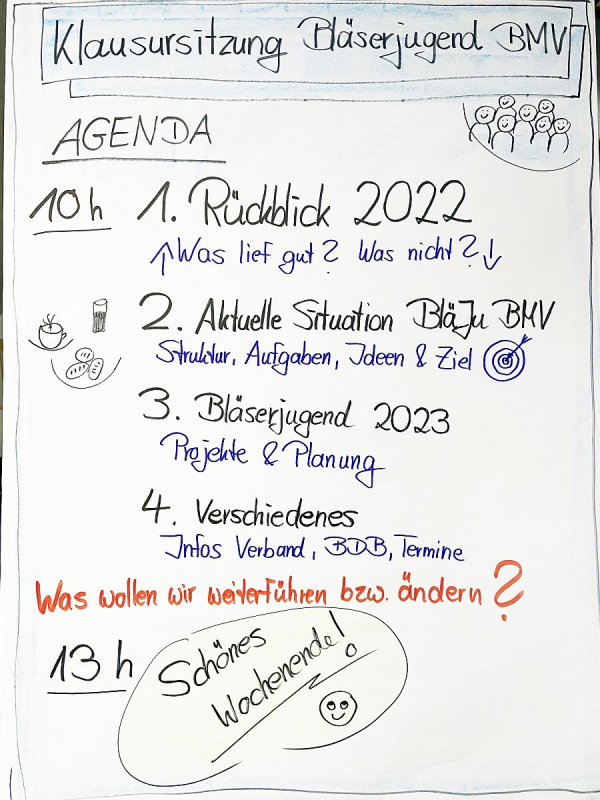 Klausursitzung Bläserjugend BMV
AGENDA
10h 1. Rückblick 2022
↑Was lief gut? Was nicht?↓
2. Aktuelle Situation BläJu BMV
Struktur, Aufgaben, Ideen & Ziel
3. Bläserjugend 2023
Projekte & Planung
4. Verschiedenes
Infos Verband, BDB, Termine
Was wollen wir weiterführen bzw. ändern?
13h Schönes
Wochenende!